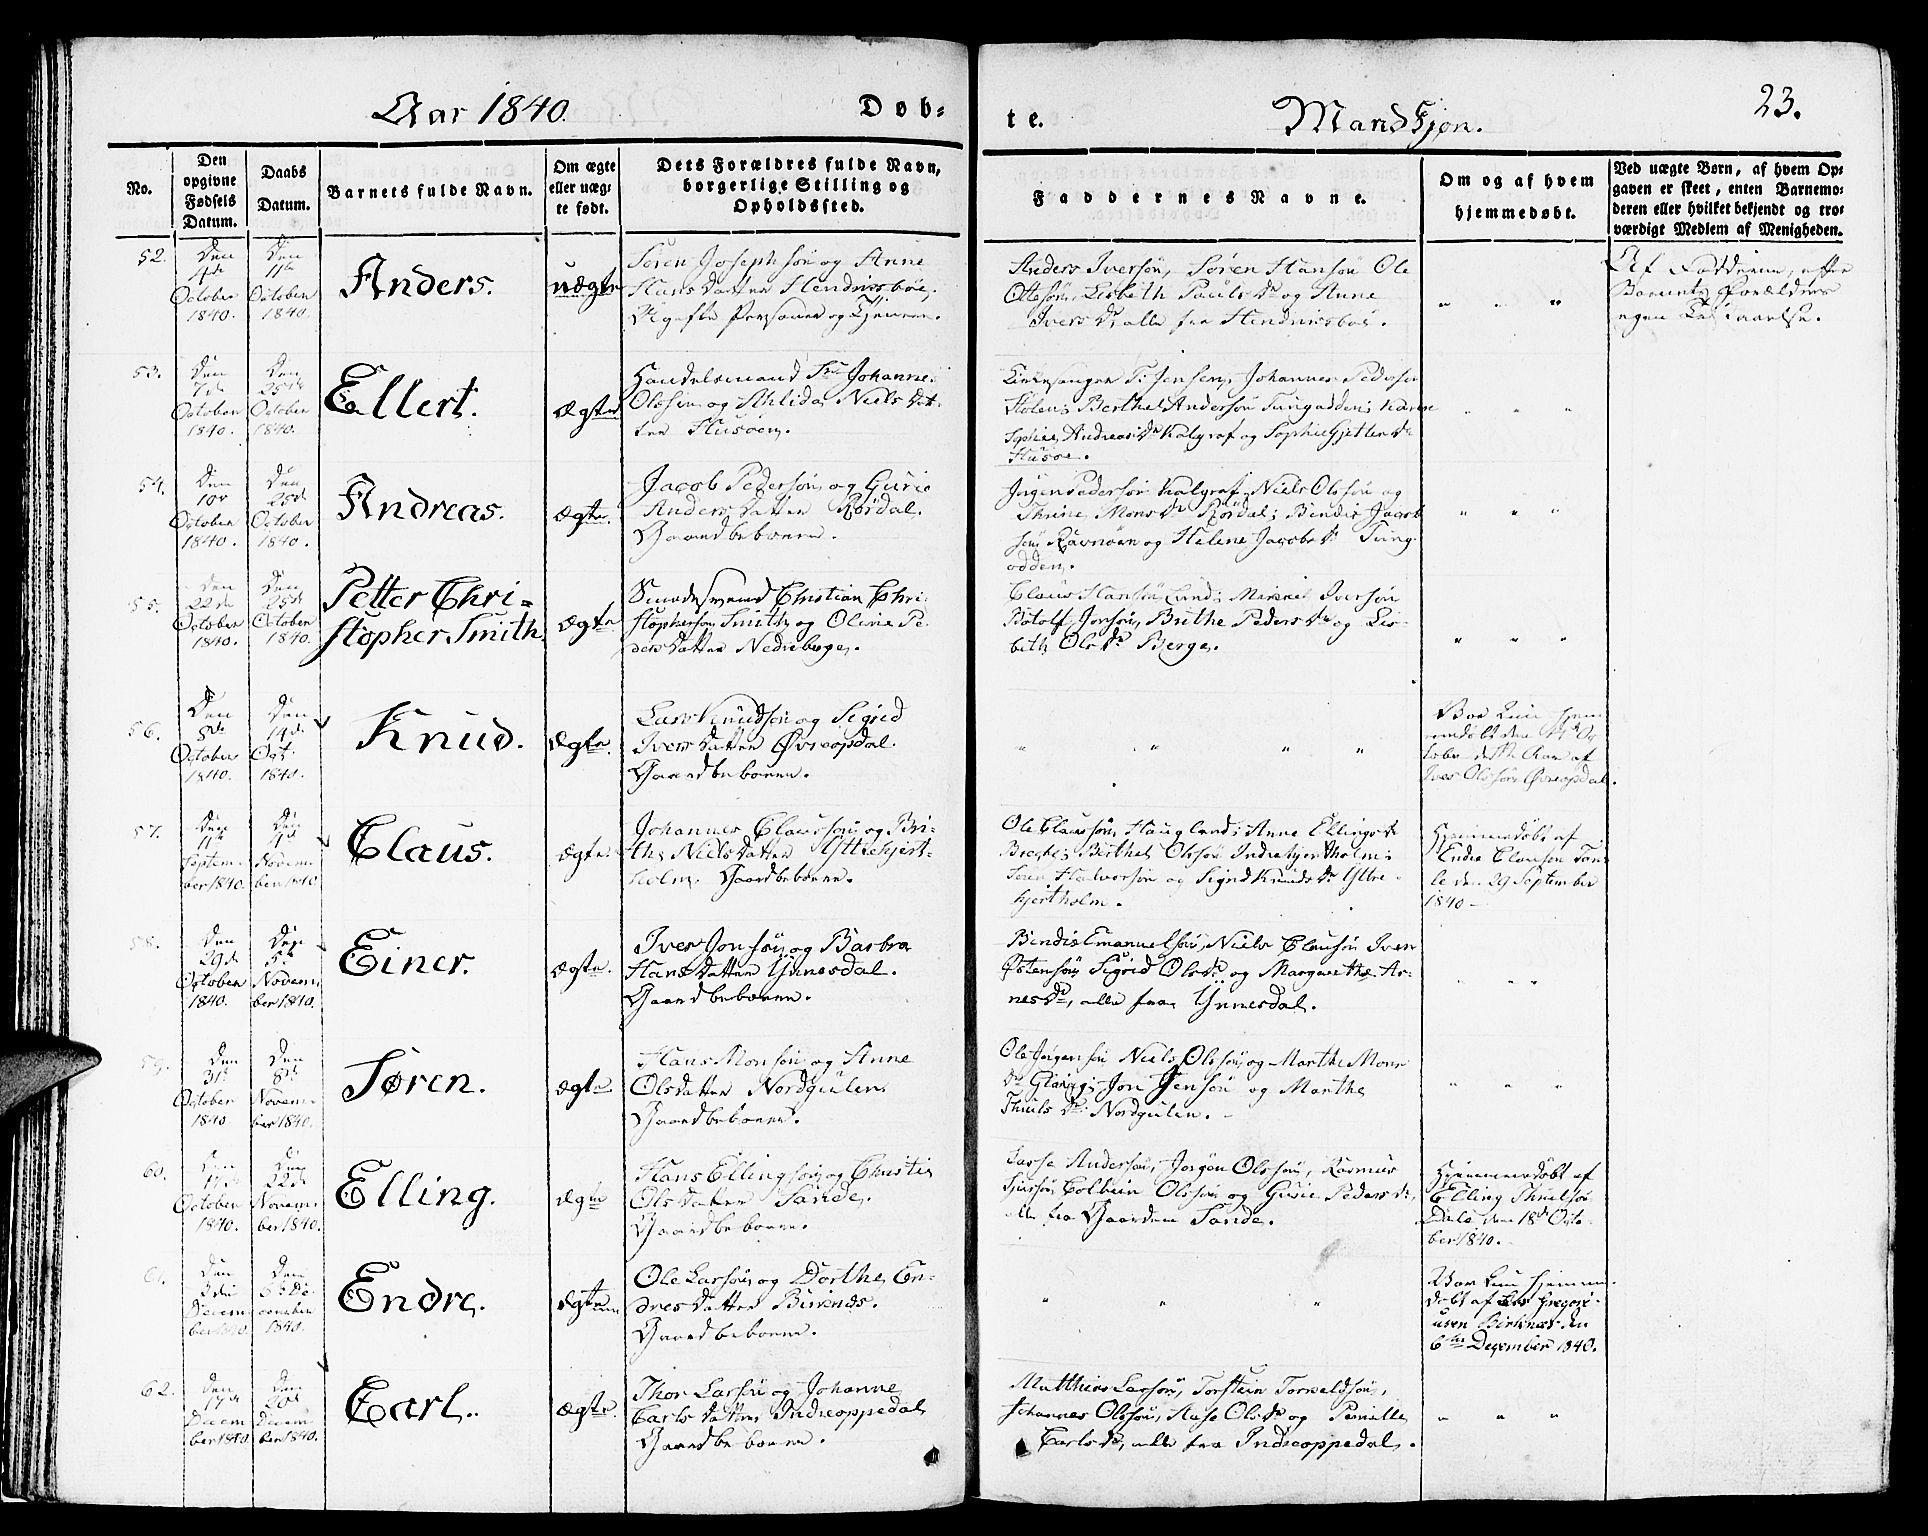 Aar 1840.
Døb-
te.
Mandkjøn.
23.
No.
Den opgivne Fødsels Datum.
Daabs Datum.
Barnets fulde Navn.
Om ægte eller uæg- te født.
Dets Forældres fulde Navn, borgerlige Stilling og Opholdssted.
Faddernes Navne.
Om og af hvem hjemmedøbt.
Ved uægte Børn, af hvem Op- gaven er skeet, enten Barnemo- deren eller hvilket bekjendt og tro- værdigt Medlem af Menigheden.
52.
Den 4de October 1840.
Den 11te October 1840.
Anders.
uægte
Søren Josephsøn og Anne
Hansdatter Hendriksbøe.
Ugifte Personer og Tjenere.
Anders Iversøn, Søren Hansøn Ole
Ottesøn, Lisbeth Pauls Dr og Anne
Ivers Dr, alle fra Hendriksbøe.
" " "
Af Fadderne, efter
Barnets Forældres
egen Tilstaaelse.
53.
Den 7de October 1840.
Den 25de October 1840.
Ellert.
Ægte
Handelsmand Sr. Johannes
Olssøn og Ahlida Niels dat-
ter Husøen.
Kirkesanger T. Jensen, Johannes Peders
Holen; Berthel Andersøn Tungodden; Karen
Sophie Andreas Dr Kalgraf og Sophie Gjetle Dr
Husøe.
" " "
54.
Den 10de October 1840.
Den 25de October 1840.
Andreas.
Ægte.
Jacob Pedersøn og Gurie
Andersdatter Rørdal.
Gaardbeboere.
Jørgen Pedersøn Kalgraf, Niels Olssøn og
Thrine Mons Dr Rørdal; Bendix Jacob
søn Ravnøen og Helene Jacobs Dr Tung
odden.
" " "
55.
Den 22de October 1840.
Den 25de October 1840.
Petter Chri=
stopher Smith.
Ægte
Smedesvend Christian Chri-
stophersøn Smith og Oline Pe-
dersdatter Nedreberge.
Claus Hansøn Lund; Mikkel Iversøn
Botolf Jonsøn, Brithe Peders Dr og Lis-
beth Ols Dr Berge.
" " "
56.
Den 8de October 1840.
Den 14de Oct. 1840.
Knud.
Ægte.
Lars Knudsøn og Sigrid
Iversdatter Øvreopdal.
Gaardbeboere.
" " " "
Var kun hjem
medøbt den 14de Oc
tober dette Aar af
Iver Olssøn Øvreopdal.
57.
Den 11te Septem- ber 1840.
Den 1ste Novem- ber 1840.
Claus.
Ægte.
Johannes Claussøn og Bri-
the Nielsdatter Yttrehjert-
holm. Gaardbeboere.
Ole Claussøn Haugland; Anne Ellings Dr
Brekke; Berthel Olssøn Indrehjertholm;
Søren Halvorsøn og Sigrid Knuds Dr Yttre-
hjertholm.
Hjemmedøbt af
Endre Clausøn Tan-
le den 29 September
1840 -
58.
Den 29de October 1840.
Den 5te Novem- ber 1840.
Einer.
Ægte.
Iver Jonsøn og Barbra
Hansdatter Ynnesdal.
Gaardbeboere.
Bendix Emanuelsøn, Niels Clausøn Iver
Østensøn, Sigrid Ols Dr og Margrethe Ar-
nes Dr, alle fra Ynnesdal.
" " "
59.
Den 31te October 1840
Den 8de Novem- ber 1840.
Søren.
Ægte
Hans Monsøn og Anne
Olsdatter Nordgulen.
Gaardbeboere.
Ole Jørgensøn Niels Olssøn, og Marthe Mons
Dr Glaveg; Jon Jensøn og Marthe
Thuls Dr: Nordgulen. -
" " "
60.
Den 17de October 1840.
Den 22de Novem- ber 1840.
Elling.
Ægte
Hans Ellingsøn og Christi
Olsdatter Sande.
Gaardbeboere.
Lasse Andersøn, Jørgen Olssøn, Rasmus
Sjursøn, Colbein Olssøn og Gurie Peders Dr,
alle fra Gaarden Sande.
Hjemmedøbt af
Elling
Dale den 18de Octo-
ber 1840. -
61.
Den 3die Decem- ber 1840.
Den 6te De- cember 1840.
Endre.
Ægte
Ole Larsøn og Dorthe En-
dresdatter Birknes.
Gaardbeboere.
" " "
Var kun hjemme-
døbt af Lars Gregori-
usen Birknes den
6te December 1840.
62.
Den 17de Decem- ber 1840.
Den 20de Decem- ber 1840.
Carl.
Ægte.
Thor Larsøn og Johanne
Carlsdatter Indreoppedal
Gaardbeboere.
Matthias Larsøn, Torstein Torvaldsøn,
Johannes Olssøn, Aase Ols Dr og Pernille
Carls Dr, alle fra Indreoppedal.
" " "